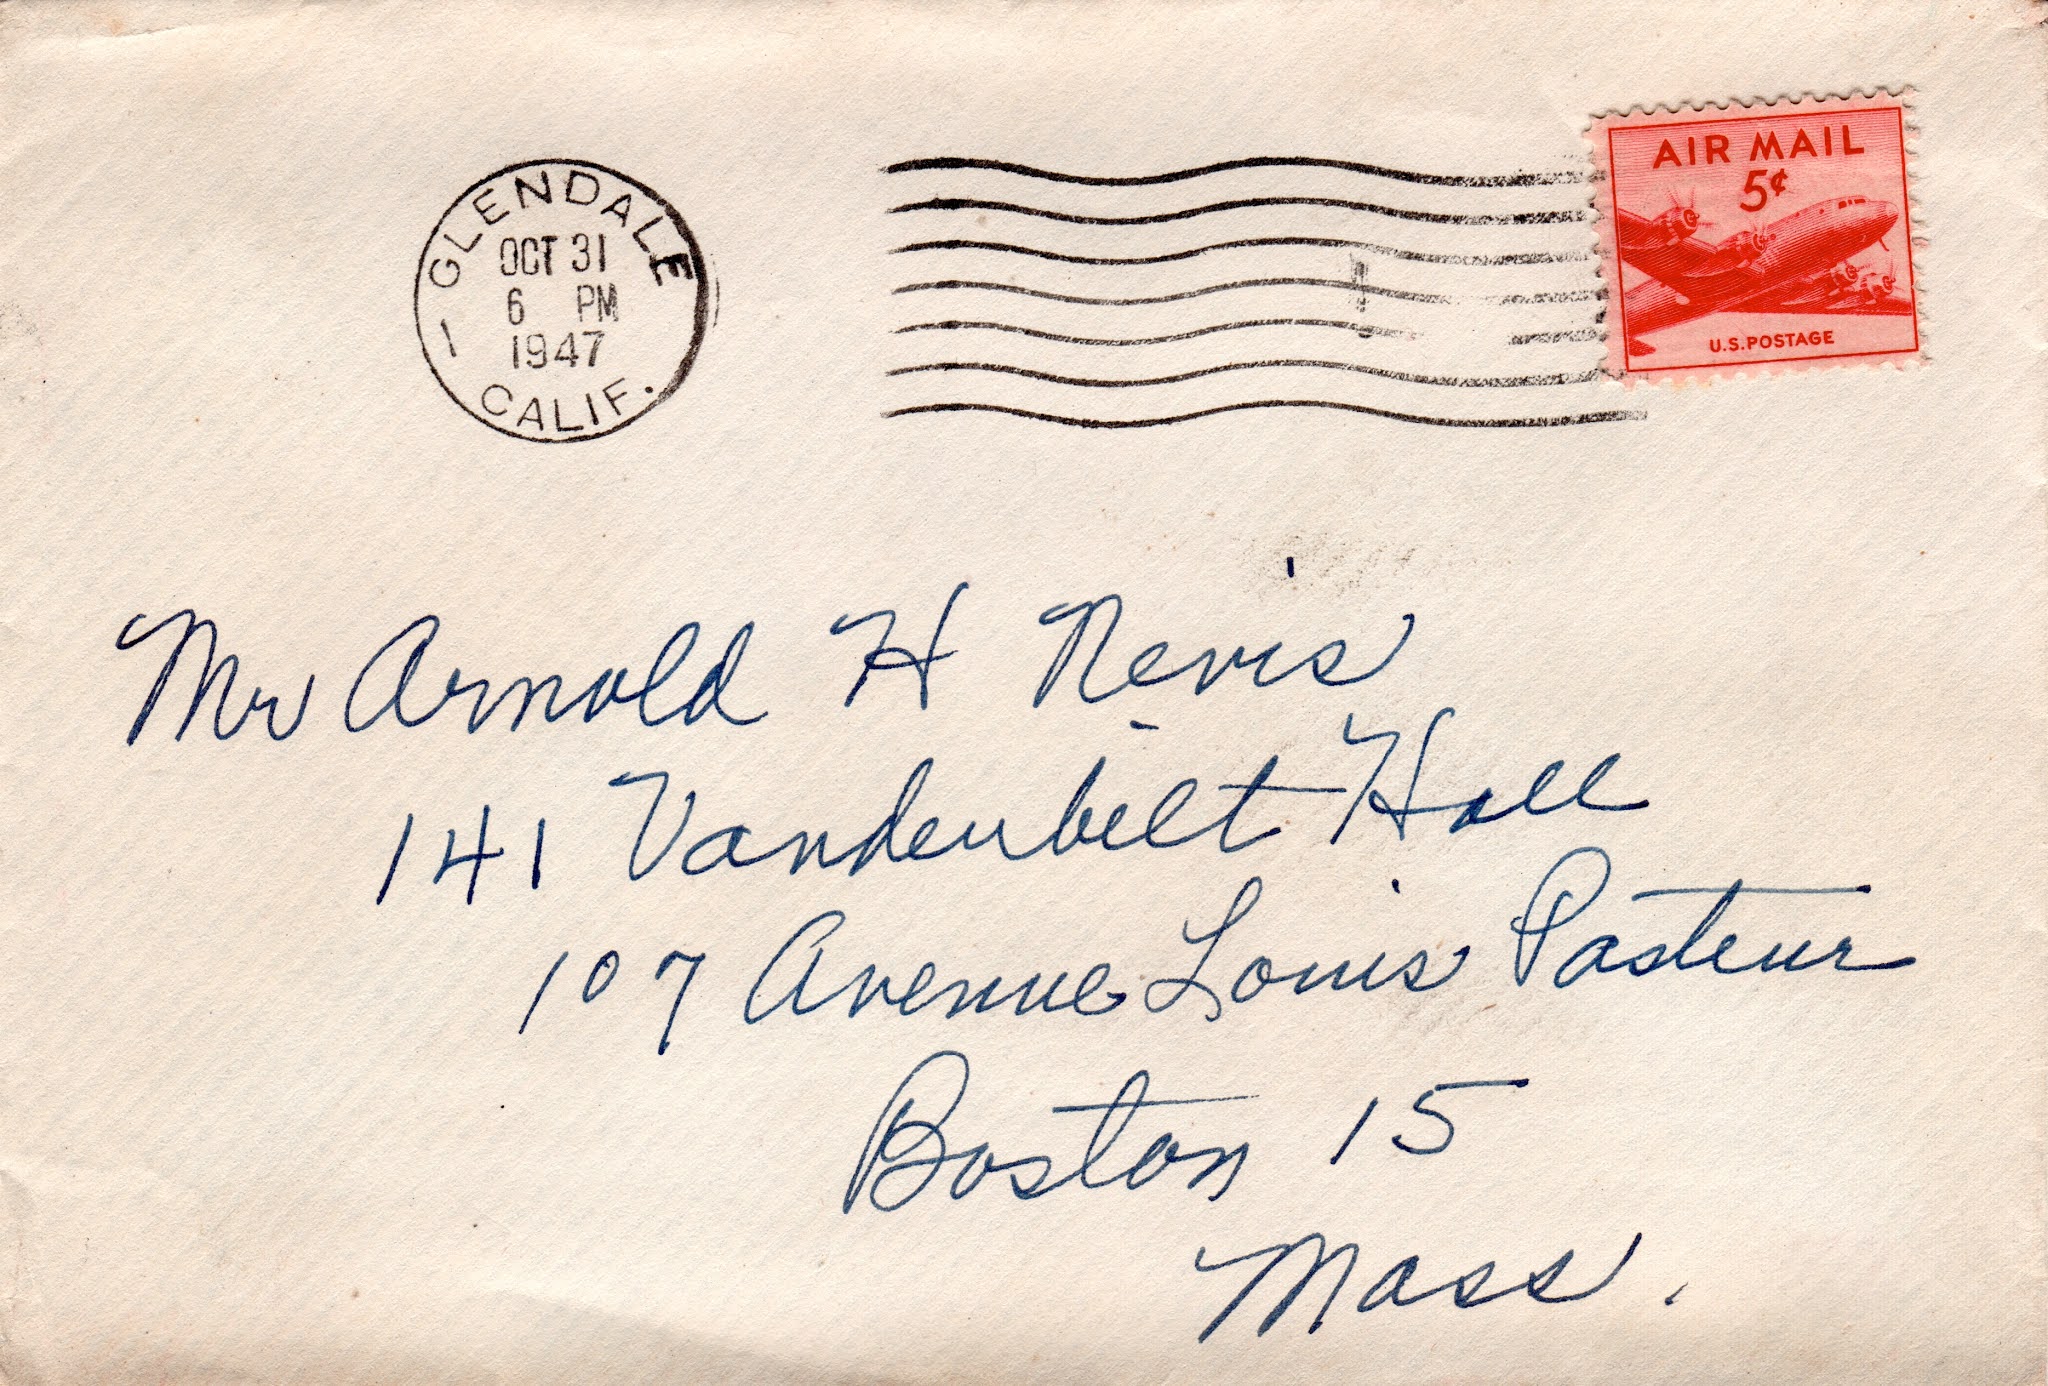 GLENDALE
OCT 31
6 PM
1947
1
CALIF.
AIR MAIL
5¢
U.S. POSTAGE
Mr Arnold H Nevis
141 Vanderbilt Hall
107 Avenue Louis Pasteur
Boston 15
Mass.